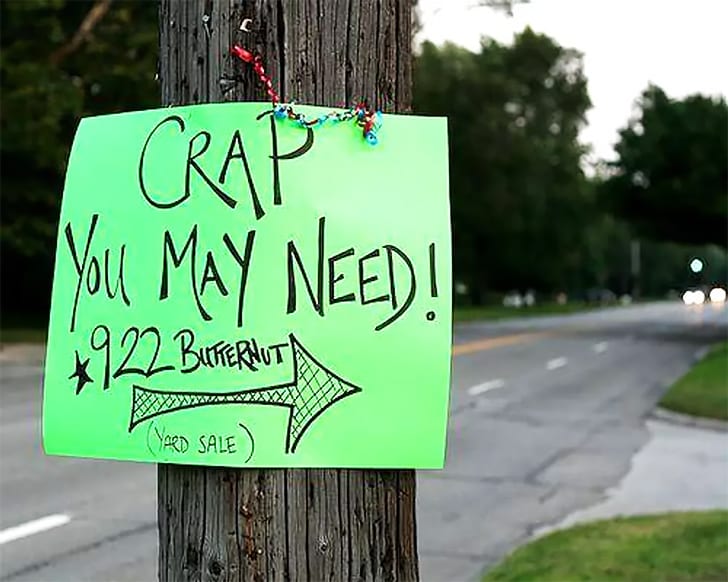 CRAP
YOU MAY NEED!
★922 BUTTERNUT
(YARD SALE)